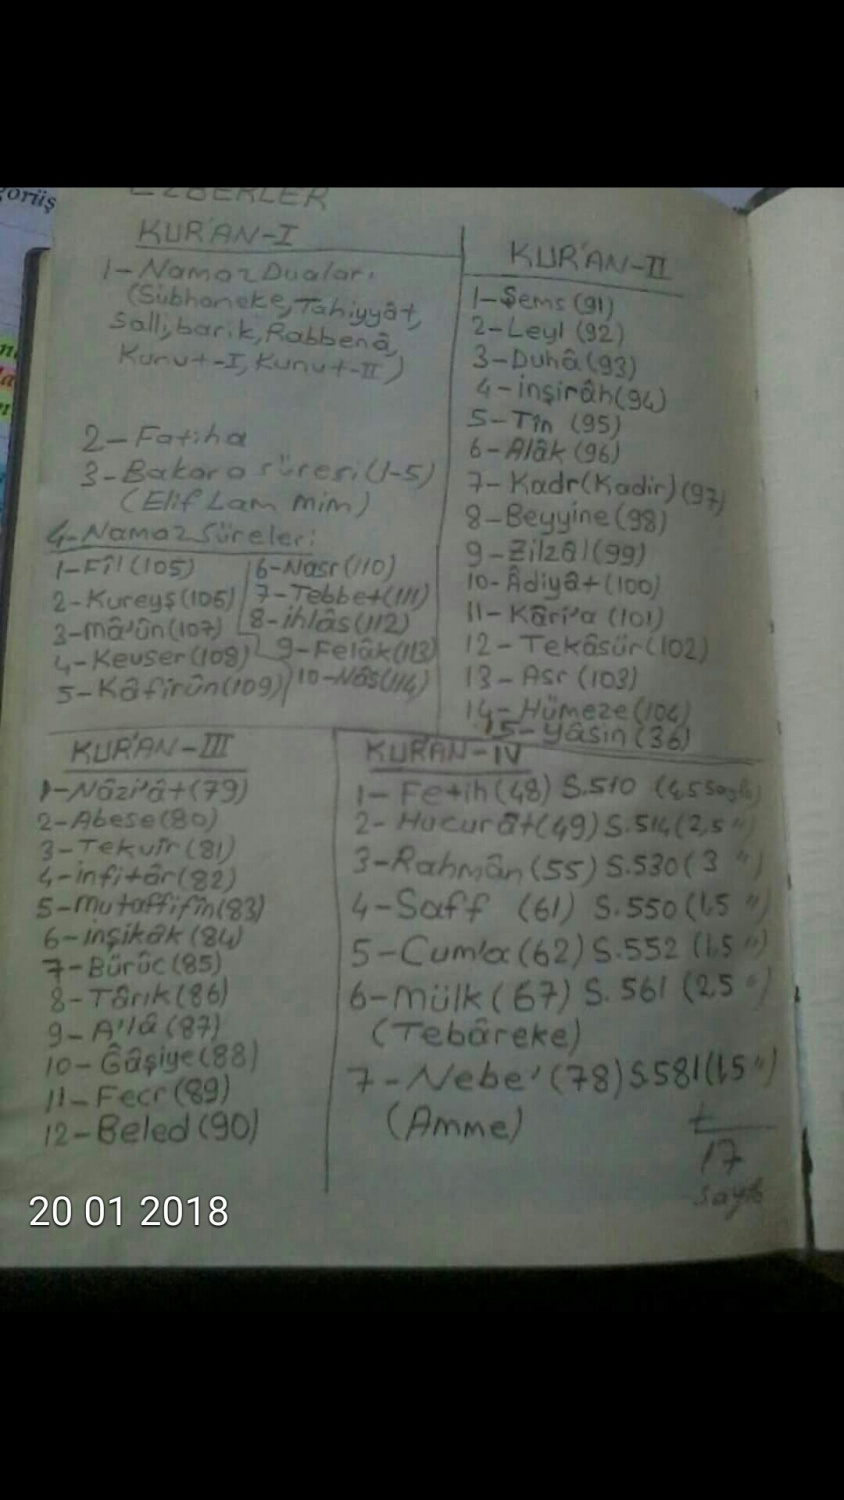 görüş
EZBERLER
KUR'AN-I
1-Namaz Duaları
(Sübhaneke, Tahiyyât,
Salli, barik, Rabbenâ,
Kunut-I, Kunut-II)
2-Fatiha
3-Bakara sûresi (1-5)
(Elif Lam mim)
4-Namaz Sûreleri
1-Fîl (105)
2-Kureyş (106)
3-Mâ'ûn (107)
4-Kevser (108)
5-Kâfirûn (109)
6-Nasr (110)
7-Tebbet (111)
8-İhlâs (112)
9-Felâk (113)
10-Nâs (114)
KUR'AN-II
1-Şems (91)
2-Leyl (92)
3-Duhâ (93)
4-İnşirâh (94)
5-Tîn (95)
6-Alâk (96)
7-Kadr (Kadir) (97)
8-Beyyine (98)
9-Zilzâl (99)
10-Âdiyât (100)
11-Kâri'a (101)
12-Tekâsür (102)
13-Asr (103)
14-Hümeze (104)
15-Yâsin (36)
KUR'AN-III
1-Nâzi'ât (79)
2-Abese (80)
3-Tekvîr (81)
4-İnfitâr (82)
5-Mutaffifîn (83)
6-İnşikâk (84)
7-Bürûc (85)
8-Târık (86)
9-A'lâ (87)
10-Ğâşiye (88)
11-Fecr (89)
12-Beled (90)
KUR'AN-IV
1-Fetih (48) S.510 (4,5 Sayfa)
2-Hucurât (49) S.514 (2,5 ")
3-Rahmân (55) S.530 (3 ")
4-Saff (61) S.550 (1,5 ")
5-Cum'a (62) S.552 (1,5 ")
6-Mülk (67) S.561 (2,5 ")
(Tebâreke)
7-Nebe' (78) S.581 (1,5 ")
(Amme)
+
17
sayfa
20 01 2018